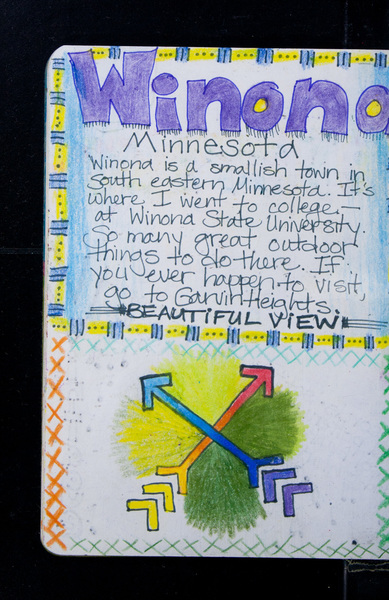 Winona
Minnesota
Winona is a smallish town in
south eastern Minnesota. It's
where I went to college –
at Winona State University.
So many great outdoor
things to do there. If
you ever happen to visit,
go to Garvin Heights.
BEAUTIFUL VIEW